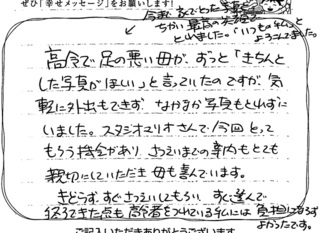 ぜひ「幸せメッセージ」をお願いします!
ちがい最高の笑顔で
とれました。「いつものやつ」と
よろこんでました。
高令で足の悪い母が、ずっと「きちんと
した写真がほしい」と言っていたのですが、気
軽に外出もできず、なかなか写真もとれずに
いました。スタジオマリオさんで今回とって
もらう機会があり、さつえいまでの案内もとても
親切にしていただき母も喜んでいます。
きどらず、すぐさつえいしてもらい、すぐ選んで
終了できた点も高齢者をつれている私には負担にならず
よかったです。
ご記入いただきありがとうございます